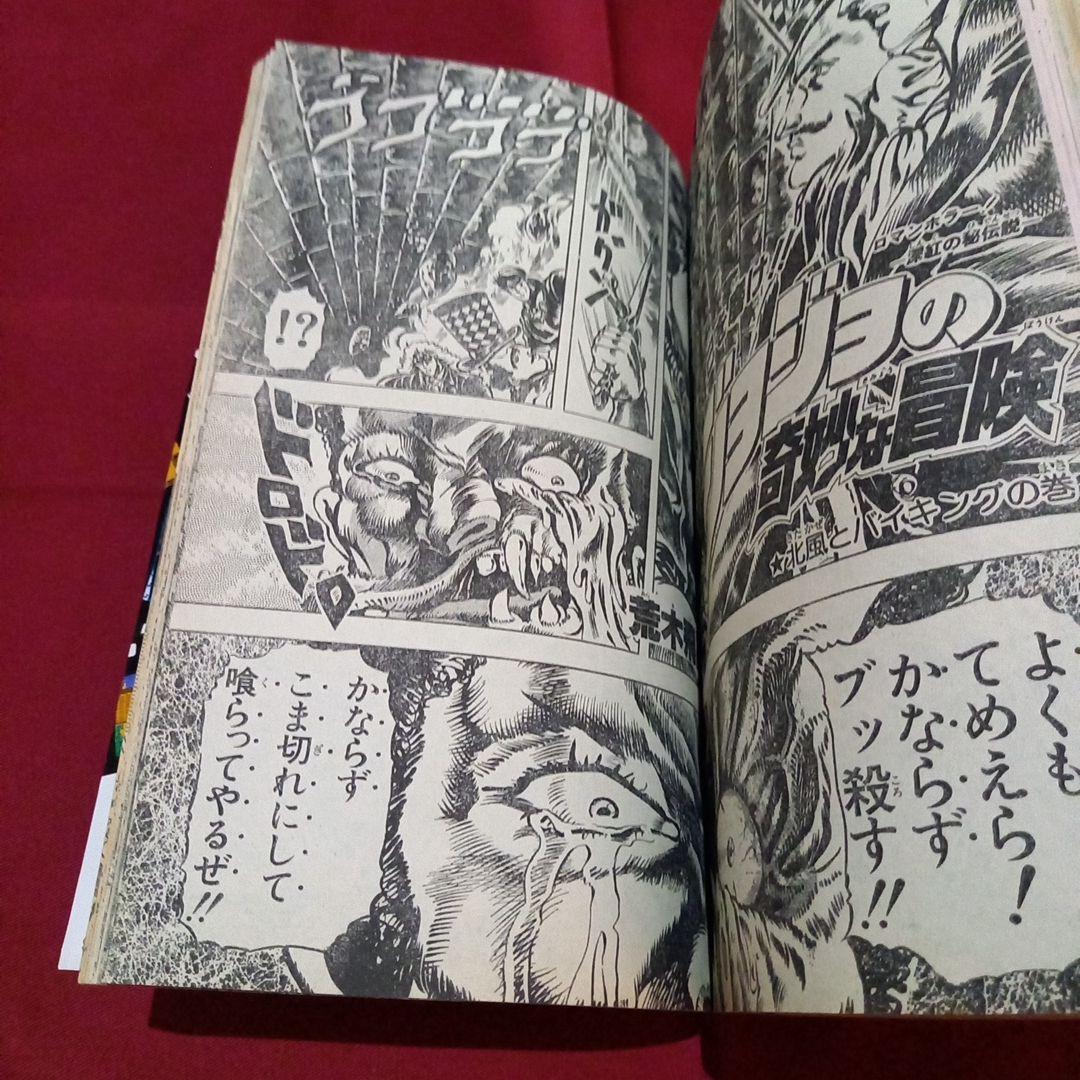 ロマンホラー!
深紅の秘伝説
ジョジョの
奇妙な冒険
ぼうけん
☆北風とバイキングの巻
きたかぜ
よくも
てめえら!
かならず
ブッ殺す!!
ころ
ゴゴゴゴ
ガリッ
!?
ドロジャロ
荒木
かならず
こま切れにして
ぎ
喰らってやるぜ!!
く